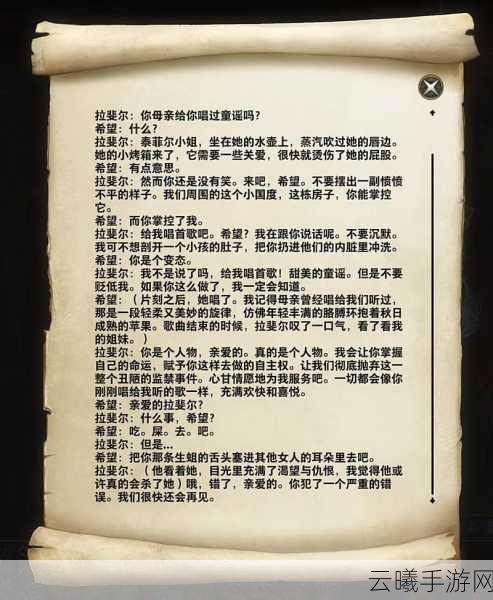 拉斐尔：你母亲给你唱过童谣吗？
希望：什么？
拉斐尔：泰菲尔小姐，坐在她的水壶上，蒸汽吹过她的唇边。
她的小烤箱来了，它需要一些关爱，很快就烫伤了她的屁股。
希望：有点意思。
拉斐尔：然而你还是没有笑。来吧，希望。不要摆出一副愤愤
不平的样子。我们周围的这个小国度，这栋房子，你能掌控
它。
希望：而你掌控了我。
拉斐尔：给我唱首歌吧。希望？我在跟你说话呢。不要沉默。
我可不想剖开一个小孩的肚子，把你扔进他们的内脏里冲洗。
希望：你是个变态。
拉斐尔：我不是说了吗，给我唱首歌！甜美的童谣。但是不要
贬低我。如果你这么做了，我一定会知道。
希望：（片刻之后，她唱了。我记得母亲曾经唱给我们听过，
那是一段轻柔又美妙的旋律，仿佛年轻丰满的胳膊环抱着秋日
成熟的苹果。歌曲结束的时候，拉斐尔叹了一口气，看了看我
的姐妹。）
拉斐尔：你是个人物，亲爱的。真的是个人物。我会让你掌握
自己的命运，赋予你这样去做的自主权。让我们彻底抛弃这一
整个丑陋的监禁事件。心甘情愿地为我服务吧。一切都会像你
刚刚唱给我听的歌一样，充满欢快和喜悦。
希望：亲爱的拉斐尔？
拉斐尔：什么事，希望？
希望：吃。屎。去。吧。
拉斐尔：但是…
希望：把你那条生蛆的舌头塞进其他女人的耳朵里去吧。
拉斐尔：（他看着她，目光里充满了渴望与仇恨，我觉得他或
许真的会杀了她）哦，错了，亲爱的。你犯了一个严重的错
误。我们很快还会再见。
云曦手游网